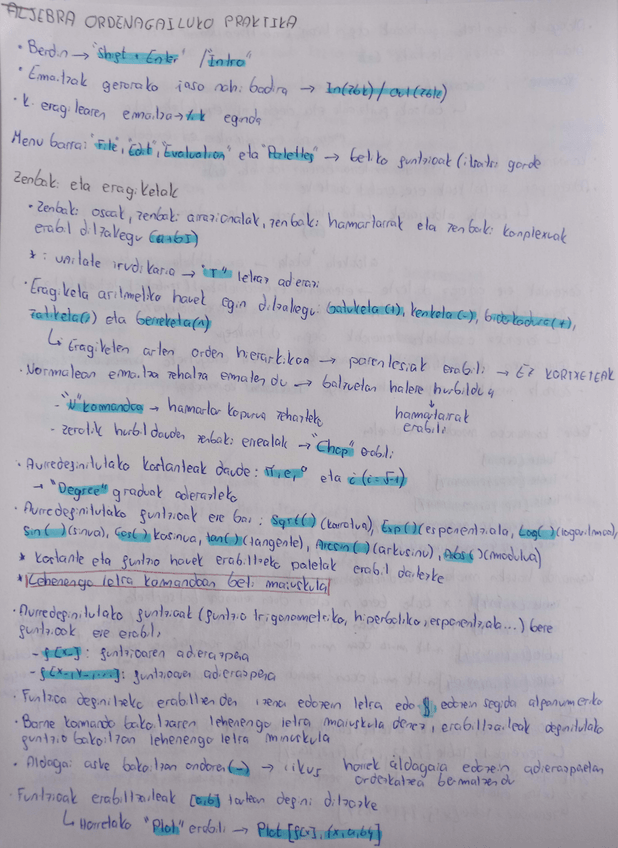 ALJEBRA ORDENAGAILUKO PRAKTIKA
· Berdin → "Shift + Enter" / "Intro"
· Emaitzak gerorako jaso nahi badira → In(zbk) / Out(zbk)
· k. eragilearen emaitza → %k eginda
Menu barra: "File", "Edit", "Evaluation" eta "Palettes" → beliko funtzioak ( gorde
Zenbaki eta eragiketak
· Zenbaki osoak, zenbaki arrazionalak, zenbaki hamartarrak eta zenbaki konplexuak
erabil ditzakegu (a+bI)
* : unitate irudikaria → "I" letraz adierazi
· Eragiketa aritmetiko hauek egin ditzakegu: batuketa (+), kenketa (-), biderkadura (*),
zatiketa (/) eta berreketa (^)
↳ Eragiketen arten orden hierarkikoa → parentesiak erabili → EZ KORTXETEAK
· Normalean emaitza zehatza ematen du → batzuetan halere hurbildu
- "N" komandoa → hamartar kopurua zehazteko
hamartarrak
erabili
- zerotik hurbil dauden zenbaki errealak → "Chop" erabili
· Aurredefinitutako konstanteak daude: π, e, ∞ eta i (i=√-1)
→ "Degree" graduak adierazteko
· Aurredefinitutako funtzioak ere bai: Sqrt( ) (karratua), Exp( ) (esponentziala), Log( ) (logaritmoa),
Sin( ) (sinua), Cos( ) kosinua, tan( ) (tangente), Arcsin( ) (arkusinu), Abs( ) (modulua)
* Konstante eta funtzio hauek erabiltzeko paletak erabil daitezke
* Lehenengo letra komandoan beti maiuskula
· Aurredefinitutako funtzioak (funtzio trigonometriko, hiperboliko, esponentziala...) bere
funtzioak ere erabili
- f[x]: funtzioaren adierazpena
- f[x-, y-, ...]: funtzioaren adierazpena
· Funtzioa definitzeko erabiltzen den izena edozein letra edo f, edozein segida alfanumeriko
· Barne komando bakoitzaren lehenengo letra maiuskula denez, erabiltzaileak definitutako
funtzio bakoitzan lehenengo letra minuskula
· Aldagai aske bakoitzan ondoren (-) → ikus honek aldagaia edozein adierazpenetan
ordezkatzea bermatzen du
· Funtzioak erabiltzaileak [a,b] tartean defini ditzazke
↳ Horretako "Plot" erabili → Plot [f[x], {x,a,b}]